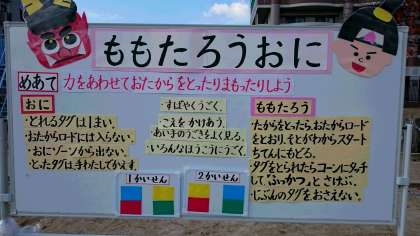 ももたろうおに
めあて 力をあわせておたからをとったりまもったりしよう
おに
・とれるタグは1まい。
・おたからロードには入らない。
・おにゾーンから出ない。
・とったタグは手わたしでかえす。
・すばやくうごく。
・こえをかけあう。
・あい手のうごきをよく見る。
・いろんなほうこうにうごく。
ももたろう
・たからをとったら、おたからロード
をとおり、そとがわからスタート
ちてんにもどる。
・タグをとられたらコーンにタッチ
して"ふっかつ"とさけぶ。
・じぶんのタグをおさえない。
1かいせん
2かいせん